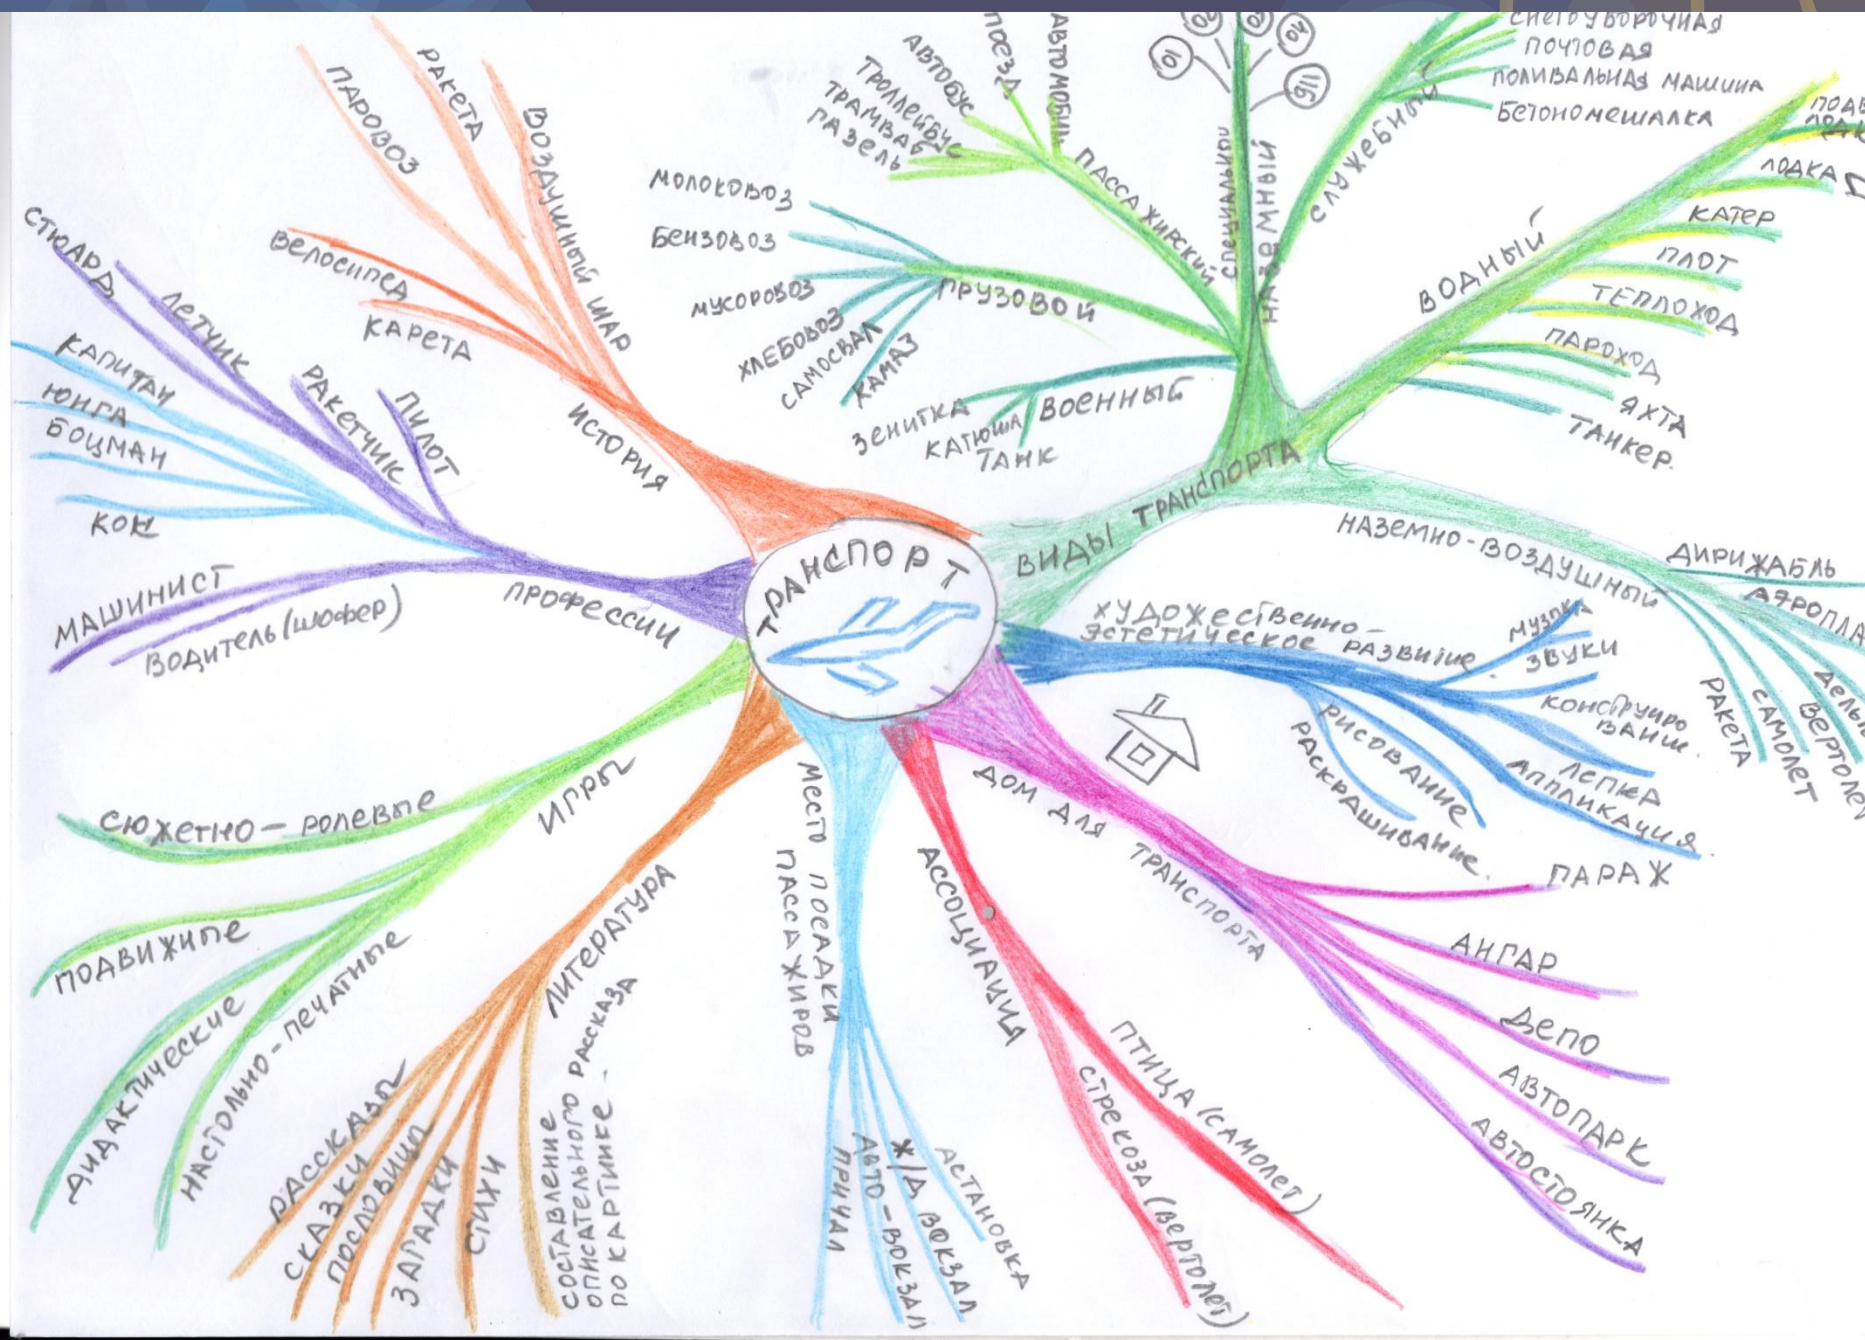 ТРАНСПОРТ
ИСТОРИЯ
ПАРОВОЗ
РАКЕТА
ВОЗДУШНЫЙ ШАР
ВЕЛОСИПЕД
КАРЕТА
ПРОФЕССИИ
СТЮАРД
ЛЕТЧИК
РАКЕТЧИК
ПИЛОТ
КАПИТАН
ЮНГА
БОЦМАН
КОК
МАШИНИСТ
ВОДИТЕЛЬ (ШОФЕР)
ИГРЫ
СЮЖЕТНО - РОЛЕВЫЕ
ПОДВИЖНЫЕ
ДИДАКТИЧЕСКИЕ
НАСТОЛЬНО - ПЕЧАТНЫЕ
ЛИТЕРАТУРА
РАССКАЗЫ
СКАЗКИ
ПОСЛОВИЦЫ
ЗАГАДКИ
СТИХИ
СОСТАВЛЕНИЕ
ОПИСАТЕЛЬНОГО РАССКАЗА
ПО КАРТИНКЕ.
МЕСТО ПОСАДКИ
ПАССАЖИРОВ
ПРИЧАЛ
АВТО-ВОКЗАЛ
Ж/Д ВОКЗАЛ
АСТАНОВКА
АССОЦИАЦИЯ
ПТИЦА (САМОЛЕТ)
СТРЕКОЗА (ВЕРТОЛЕТ)
ДОМ ДЛЯ
ТРАНСПОРТА
ГАРАЖ
АНГАР
ДЕПО
АВТОПАРК
АВТОСТОЯНКА
ХУДОЖЕСТВЕННО-
ЭСТЕТИЧЕСКОЕ РАЗВИТИЕ
МУЗЫКА
ЗВУКИ
КОНСТРУИРО
ВАНИЕ.
ЛЕПКА
АППЛИКАЦИЯ.
РИСОВАНИЕ
РАСКРАШИВАНИЕ.
ВИДЫ ТРАНСПОРТА
НАЗЕМНО-ВОЗДУШНЫЙ
ДИРИЖАБЛЬ
АЭРОПЛА
ДЕЛЬ
ВЕРТОЛЕТ
САМОЛЕТ
РАКЕТА
ВОДНЫЙ
ЛОДКА
КАТЕР
ПЛОТ
ТЕПЛОХОД
ПАРОХОД
ЯХТА
ТАНКЕР.
НАЗЕМНЫЙ
СЛУЖЕБНЫЙ
СНЕГОУБОРОЧНАЯ
ПОЧТОВАЯ
ПОЛИВАЛЬНАЯ МАШИНА
БЕТОНОМЕШАЛКА
СПЕЦИАЛЬНЫЙ
ПАССАЖИРСКИЙ
АВТОМОБИЛЬ
ПОЕЗД
АВТОБУС
ТРОЛЛЕЙБУС
ТРАМВАЙ
ГАЗЕЛЬ
ГРУЗОВОЙ
МОЛОКОВОЗ
БЕНЗОВОЗ
МУСОРОВОЗ
ХЛЕБОВОЗ
САМОСВАЛ
КАМАЗ
ВОЕННЫЙ
ЗЕНИТКА
КАТЮША
ТАНК